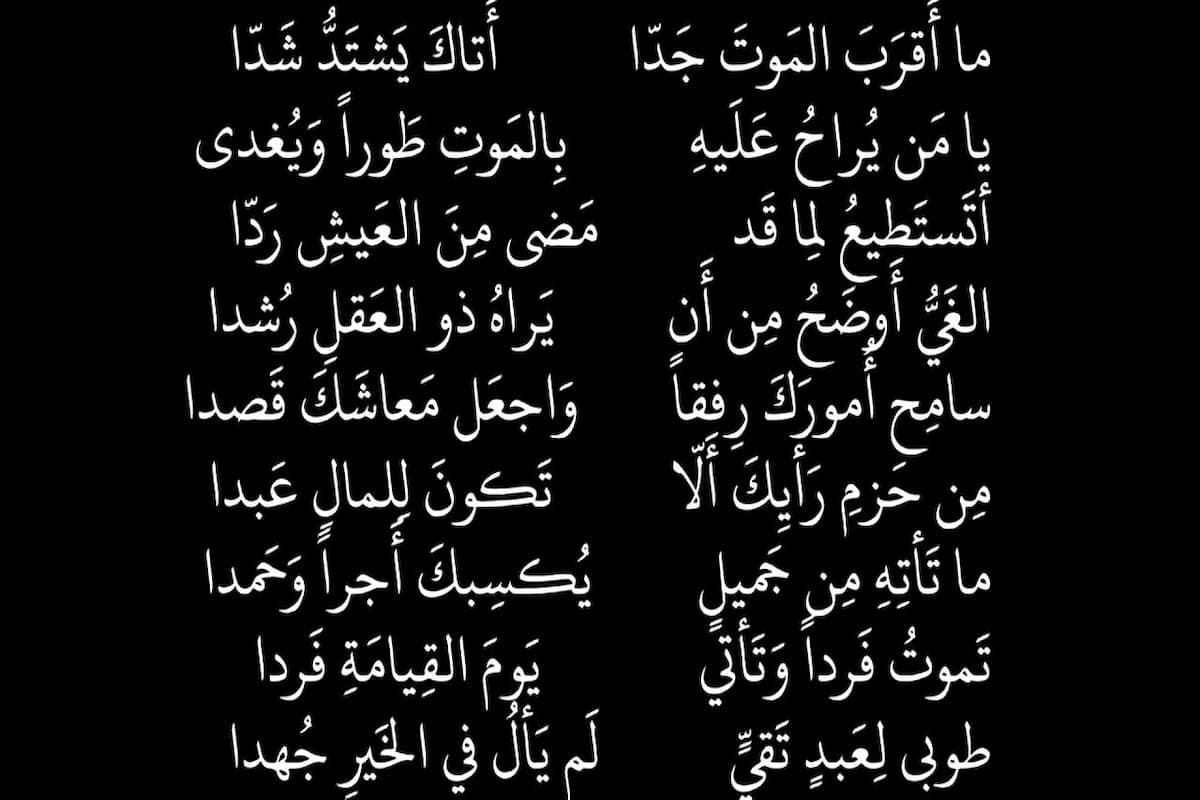 ما أَقرَبَ المَوتَ جَدّا أَتاكَ يَشتَدُّ شَدّا
يا مَن يُراحُ عَلَيهِ بِالمَوتِ طَوراً وَيُغدى
أَتَستَطيعُ لِما قَد مَضى مِنَ العَيشِ رَدّا
الغَيُّ أَوضَحُ مِن أَن يَراهُ ذو العَقلِ رُشدا
سامِح أُمورَكَ رِفِقاً وَاجعَل مَعاشَكَ قَصدا
مِن حَزمِ رَأيِكَ أَلّا تَكونَ لِلمالِ عَبدا
ما تَأتِهِ مِن جَميلٍ يُكسِبكَ أَجراً وَحَمدا
تَموتُ فَرداً وَتَأتي يَومَ القِيامَةِ فَردا
طوبى لِعَبدٍ تَقيٍّ لَم يَألُ في الخَيرِ جُهدا